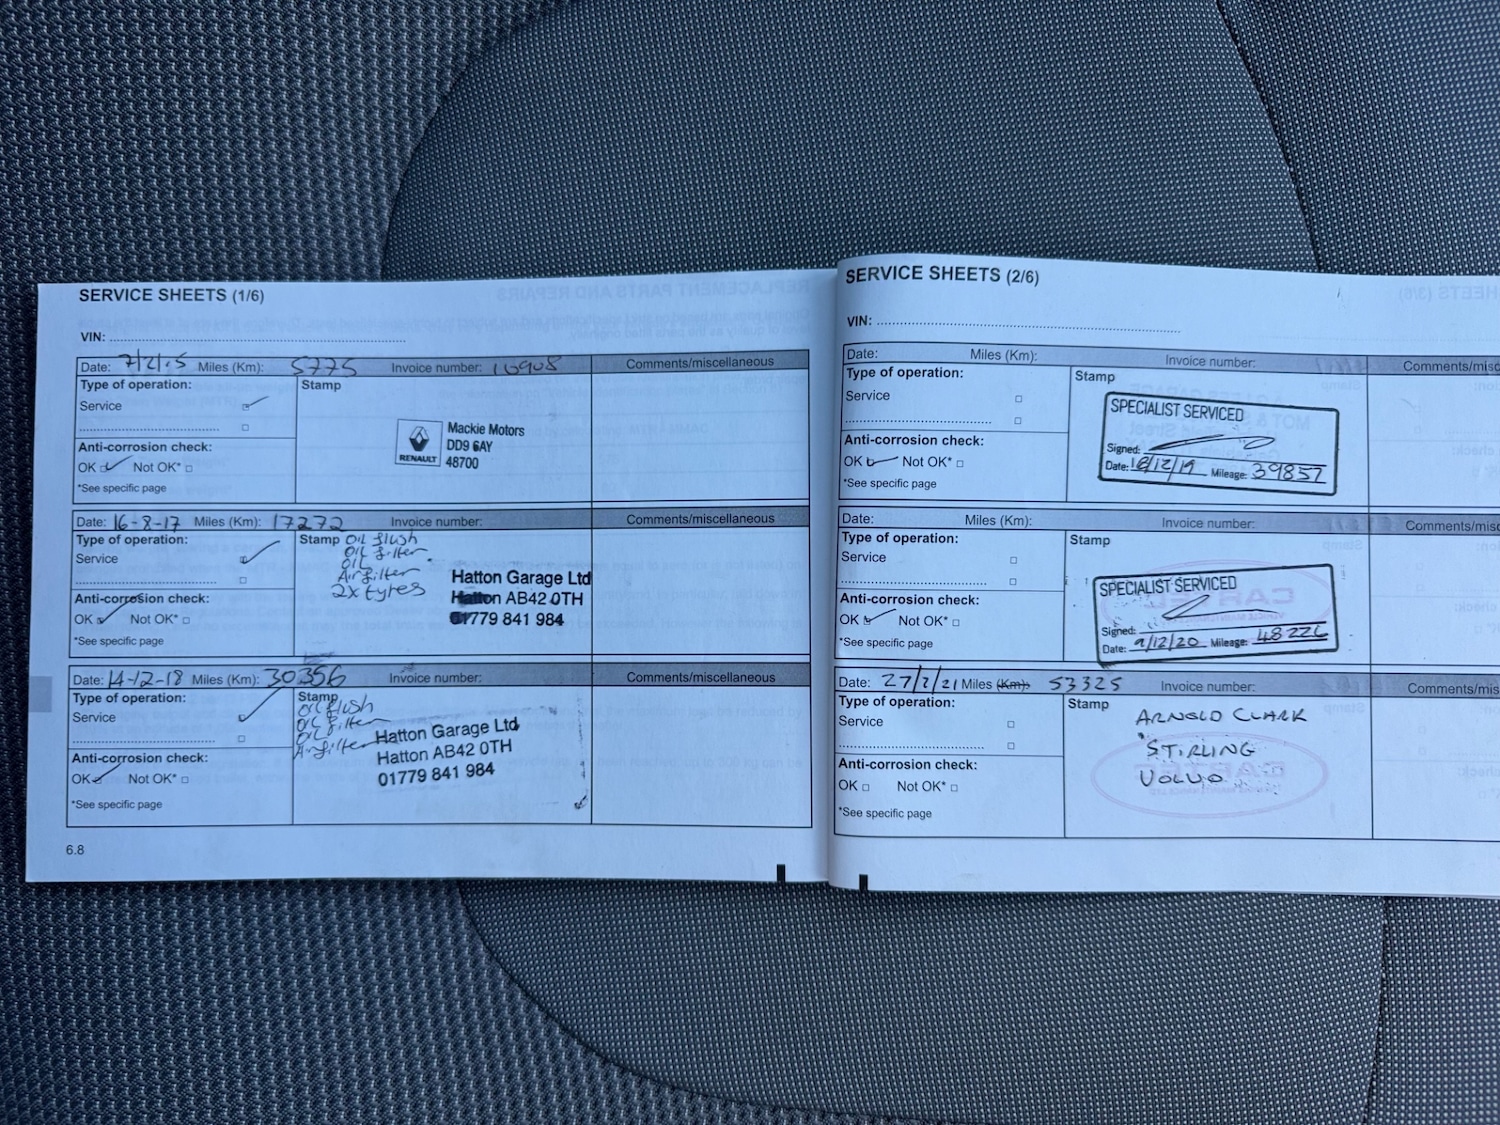 SERVICE SHEETS (1/6)
VIN:
Date: 7/2/15 Miles (Km): 5775 Invoice number: 10908 Comments/miscellaneous
Type of operation: Stamp
Service
Mackie Motors
DD9 6AY
RENAULT 48700
Anti-corrosion check:
OK Not OK*
*See specific page
Date: 16-8-17 Miles (Km): 17272 Invoice number: Comments/miscellaneous
Type of operation: Stamp Oil flush
Oil filter
Service Oil
Air filter
2x tyres
Hatton Garage Ltd
Hatton AB42 0TH
01779 841 984
Anti-corrosion check:
OK Not OK*
*See specific page
Date: 14-12-18 Miles (Km): 30356 Invoice number: Comments/miscellaneous
Type of operation: Stamp
Oil flush
Service Oil filter
Oil
Air filter
Hatton Garage Ltd
Hatton AB42 0TH
01779 841 984
Anti-corrosion check:
OK Not OK*
*See specific page
6.8
SERVICE SHEETS (2/6)
VIN:
Date: Miles (Km): Invoice number:
Type of operation: Stamp
Service
SPECIALIST SERVICED
Signed:
Date: Mileage: 39857
Anti-corrosion check:
OK Not OK*
*See specific page
Date: Miles (Km): Invoice number:
Type of operation: Stamp
Service
SPECIALIST SERVICED
Signed:
Date: 9/12/20 Mileage: 48226
Anti-corrosion check:
OK Not OK*
*See specific page
Date: 27/7/21 Miles (Km): 53325 Invoice number:
Type of operation: Stamp
Service
ARNOLD CLARK
STIRLING
VOLVO
Anti-corrosion check:
OK Not OK*
*See specific page